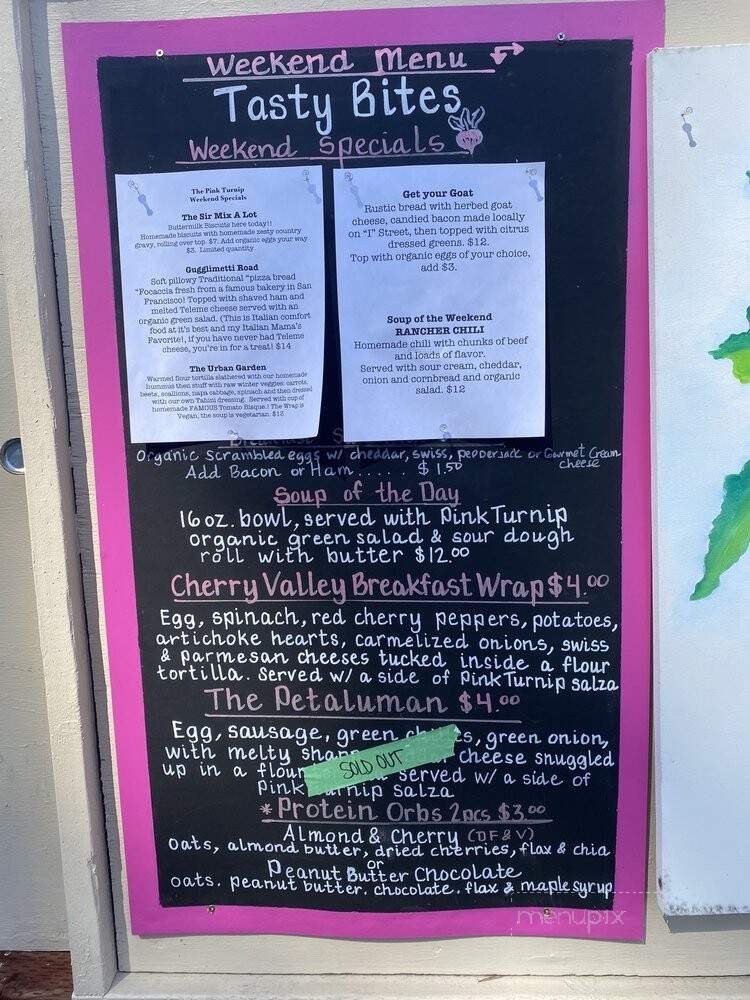 Weekend Menu
Tasty Bites
Weekend Specials
The Pink Turnip
Weekend Specials
The Sir Mix A Lot
Buttermilk Biscuits here today!!
Homemade biscuits with homemade zesty country
gravy, rolling over top. $7. Add organic eggs your way
$3. Limited quantity.
Gugglimetti Road
Soft pillowy Traditional "pizza bread
"Focaccia fresh from a famous bakery in San
Francisco! Topped with shaved ham and
melted Teleme cheese served with an
organic green salad. (This is Italian comfort
food at it's best and my Italian Mama's
Favorite!, if you have never had Teleme
cheese, you're in for a treat! $14
The Urban Garden
Warmed flour tortilla slathered with our homemade
hummus then stuff with raw winter veggies: carrots,
beets, scallions, napa cabbage, spinach and then dressed
with our own Tahini dressing. Served with cup of
homemade FAMOUS Tomato Bisque.! The Wrap is
Vegan, the soup is vegetarian. $12
Get your Goat
Rustic bread with herbed goat
cheese, candied bacon made locally
on "I" Street, then topped with citrus
dressed greens. $12.
Top with organic eggs of your choice,
add $3.
Soup of the Weekend
RANCHER CHILI
Homemade chili with chunks of beef
and loads of flavor.
Served with sour cream, cheddar,
onion and cornbread and organic
salad. $12
Breakfast
Organic scrambled eggs w/ cheddar, swiss, pepperjack or Gourmet Cream
cheese
Add Bacon or Ham ..... $1.50
Soup of the Day
16 oz. bowl, served with Pink Turnip
organic green salad & sour dough
roll with butter $12.00
Cherry Valley Breakfast Wrap $4.00
Egg, spinach, red cherry peppers, potatoes,
artichoke hearts, carmelized onions, swiss
& parmesan cheeses tucked inside a flour
tortilla. Served w/ a side of Pink Turnip salza
The Petaluman $4.00
Egg, sausage, green chiles, green onion,
with melty sharp cheese snuggled
SOLD OUT
up in a flour served w/ a side of
Pink Turnip salza
*Protein Orbs 2pcs $3.00
Almond & Cherry (DF & V)
oats, almond butter, dried cherries, flax & chia
or
Peanut Butter Chocolate
oats. peanut butter. chocolate. flax & maple syrup
menupix